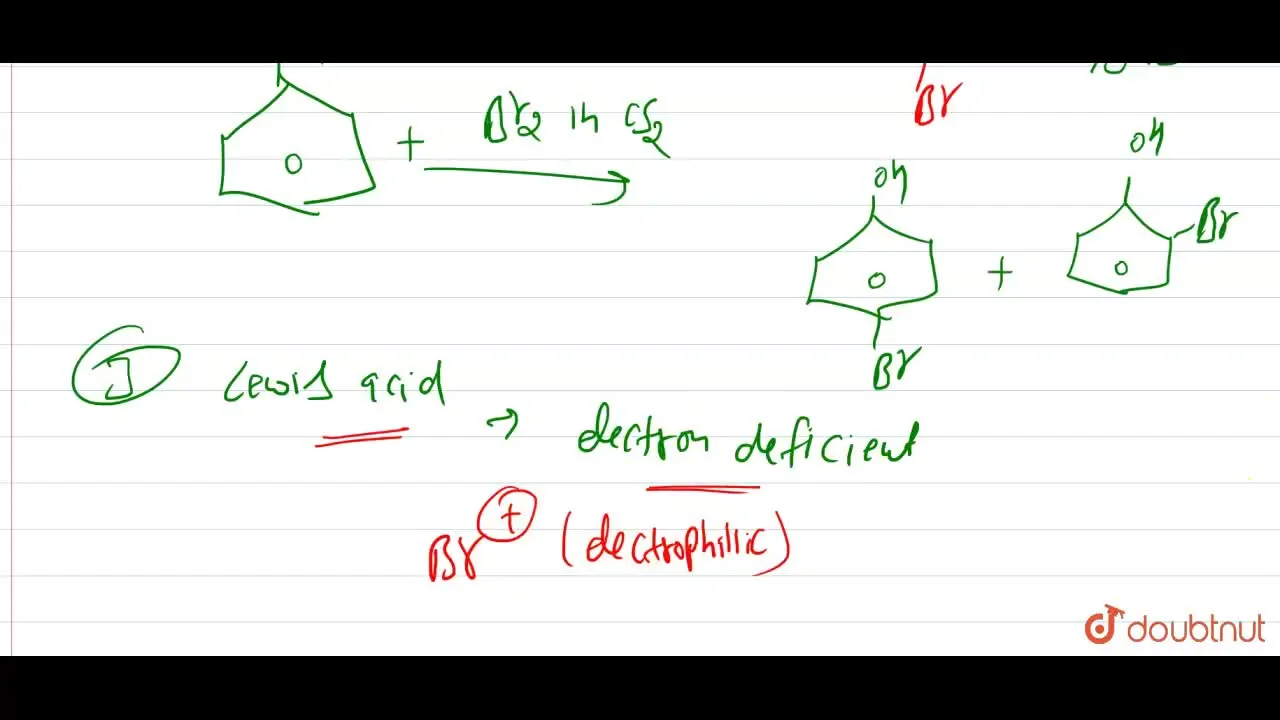 Br
+ Br2 in CS2
OH
OH
O
Br
O
+
O
Br
Lewis acid → electron deficient
Br + (electrophillic)
doubtnut